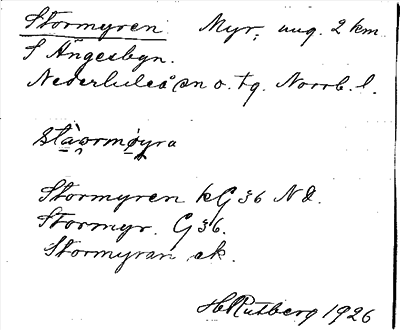 Stormyren Myr, ung. 2 km
S Ängesbyn.
Nederluleå sn o. tg. Norrb. l.
stàormøyra
Stormyren kG 36 NO.
Stormyr. G 36.
Stormyran ek.
HRutberg 1926